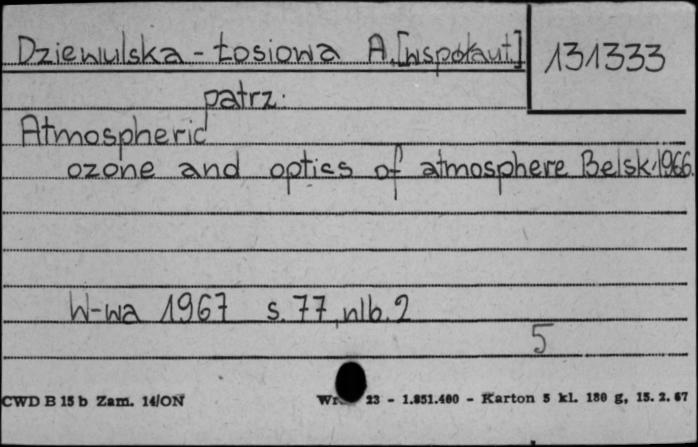 Dziewulska-Łosiowa A.[współaut.] 131333
patrz:
Atmospheric
ozone and optics of atmosphere Belsk.1966.
W-wa 1967 s.77, nlb.2
5
CWD B 15 b Zam. 14/ON 23 - 1.851.400 - Karton 5 kl. 180 g, 15. 2. 67